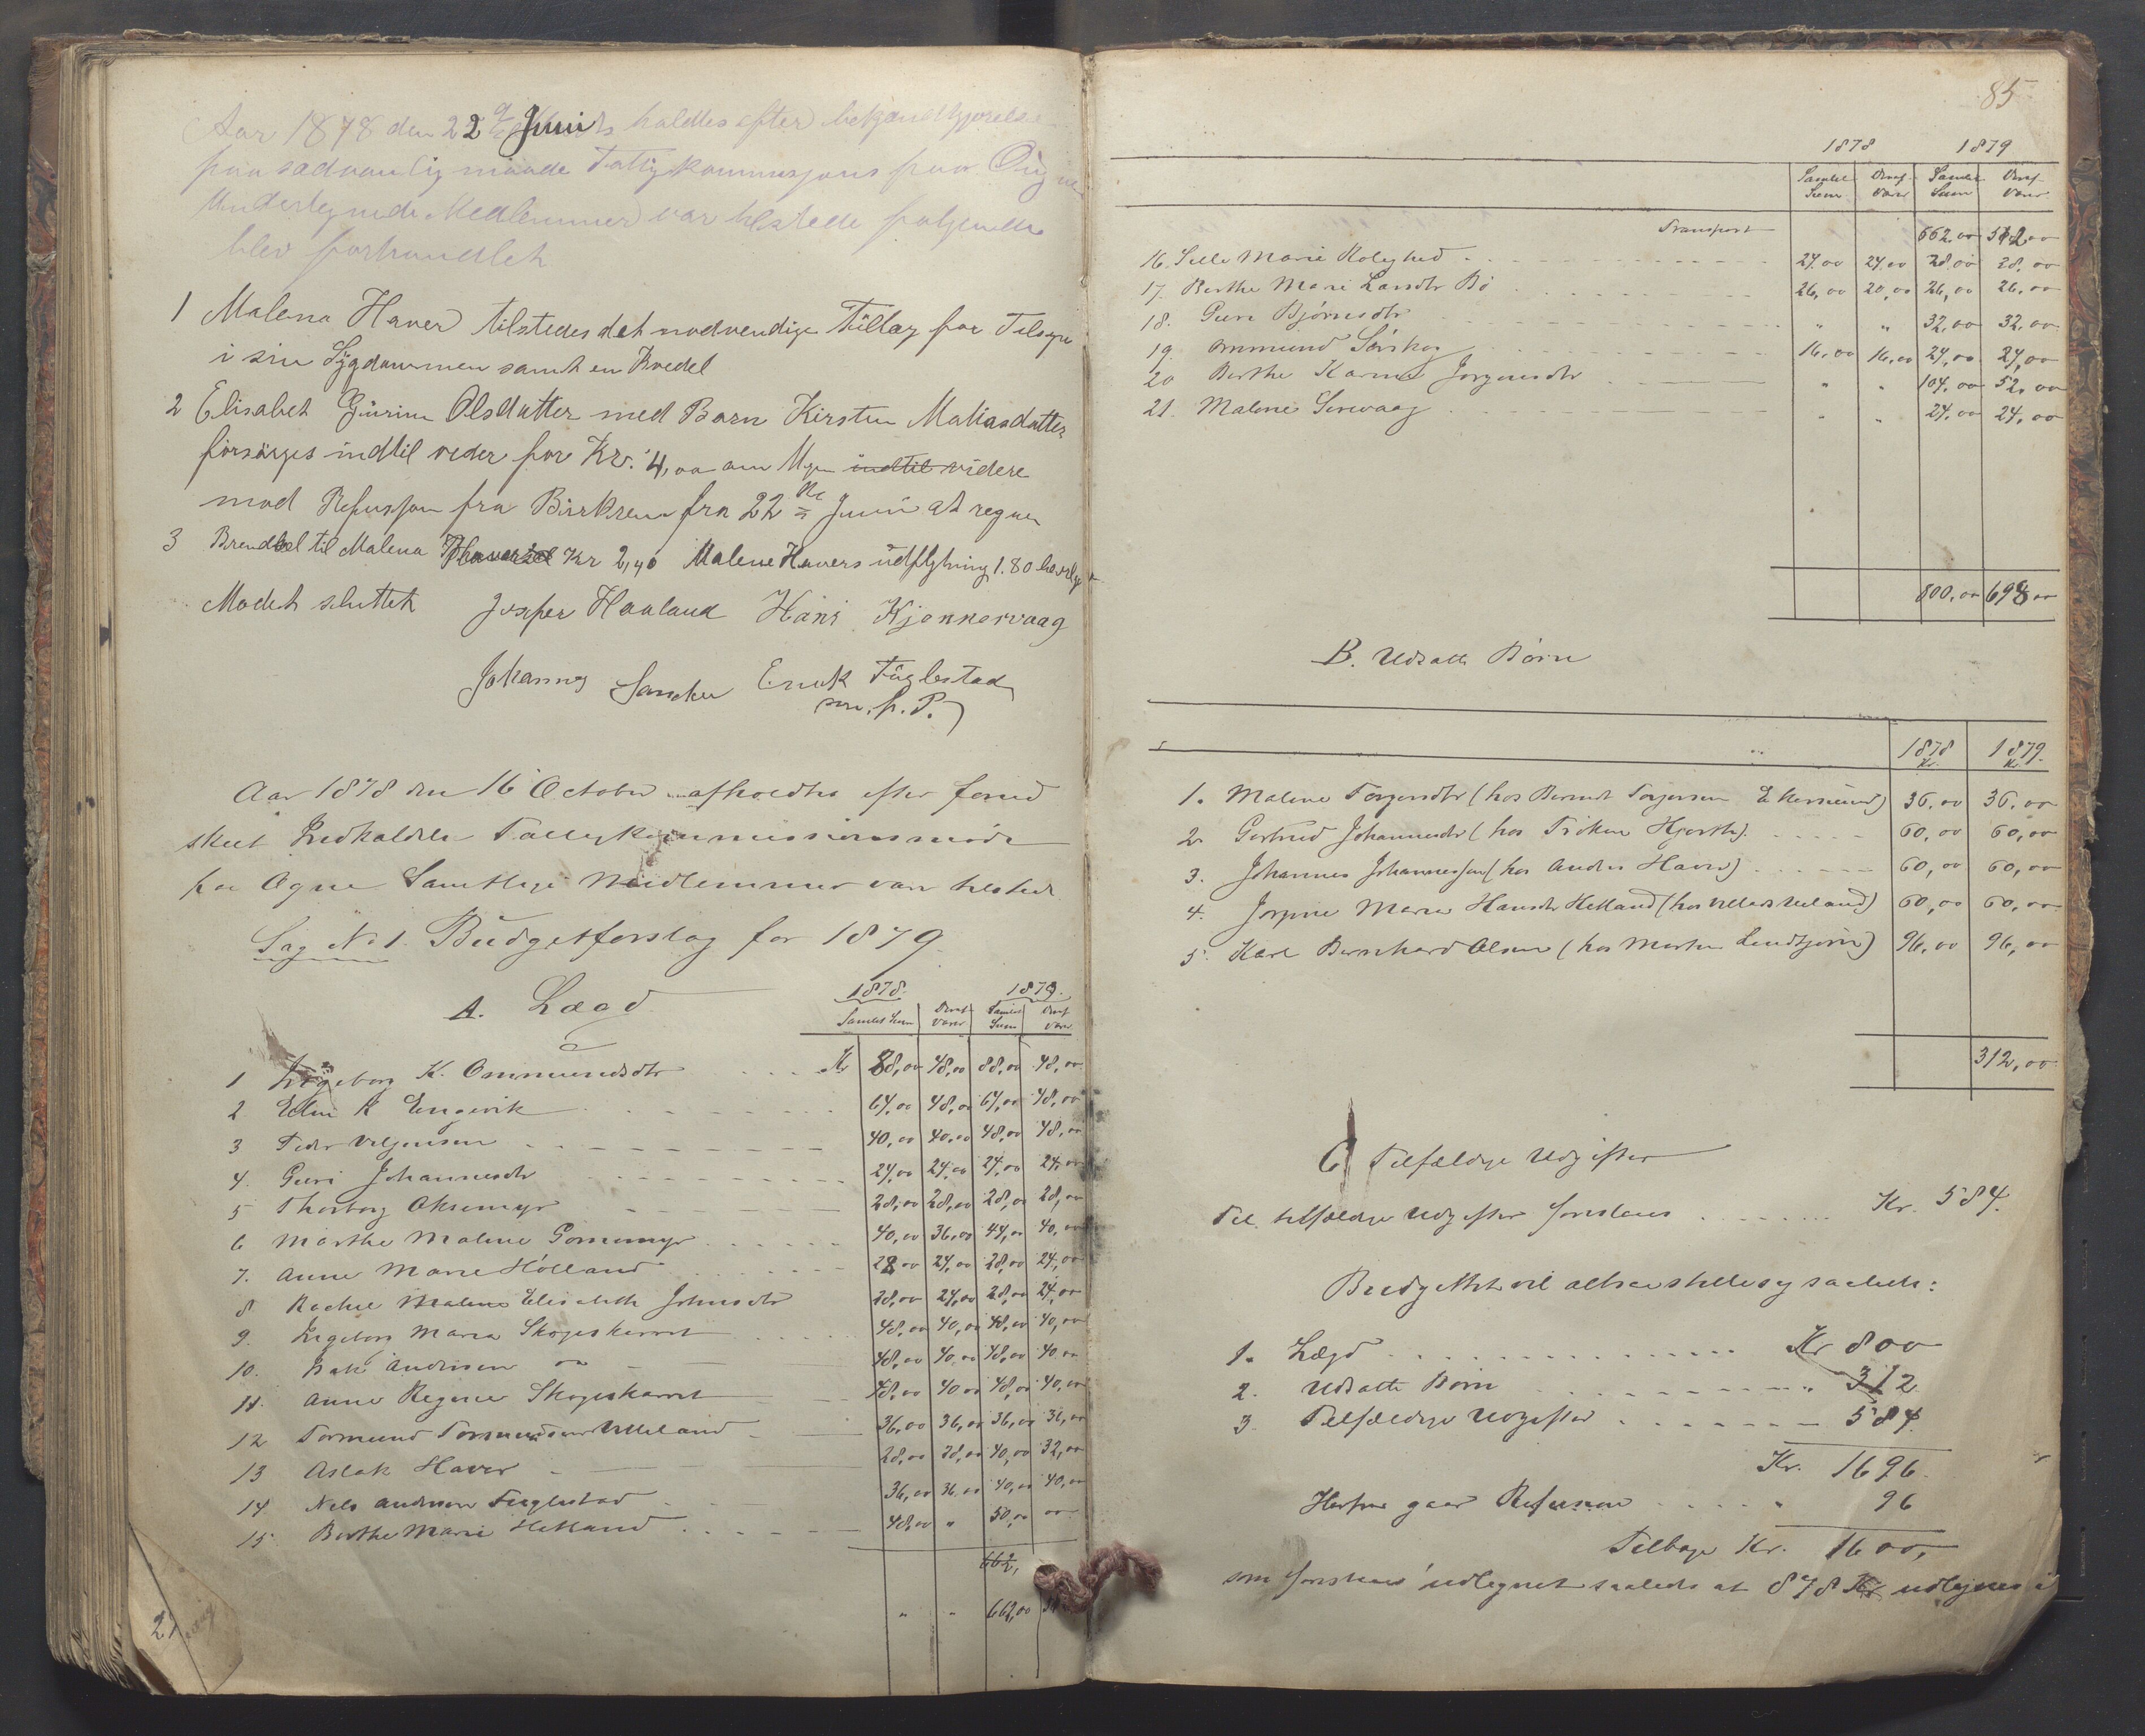 Aar 1878 den 22 Juni holdtes efter bekjendtgjørelse
paa sædvanlig maade Fattigkommisjons paa Ougne
Undertegnede Medlemmer var tilstede følgende
blev forhandlet
1 Malena Haver tilstedes det nødvendige Tillæg for Tilsyn
i sin Sygdommen samt en Kvedel
2 Elisabet Gurine Olsdatter med Barn Kirsten Matiasdatter
forsørges indtil veder for Kr. 4,00 om Ugen indtil videre
mod Refusjon fra Birkrem fra 22de Juni at regne
3 Brendsel til Malena Kr 2,40 Malene Havers udflytning 1.80
Mødet sluttet Jesper Haaland Hans Kjønnervaag
Johannes Enok Fuglestad
m. p. P.
Aar 1878 den 16 October afholdtes efter forud
skeet Indkaldelse Fattigkommissionsmøde
paa Ogne Samtlige Medlemmer var tilstede
Sag No 1. Budgetforslag for 1879.
A. Lægd
1878. 1879.
Samlet Sum Deraf Varer Samlet Sum Deraf Varer
1 Ingeborg K. Ommundsdtr Kr 88,00 48,00 88,00 48,00
2 Elen K Engevik 64,00 48,00 64,00 48,00
3 Peder Valgensen 40,00 40,00 48,00 48,00
4. Guri Johannesdtr 24,00 24,00 24,00 24,00
5 Thorborg Aksemyr 28,00 28,00 28,00 28,00
6 Marthe Malene 40,00 36,00 44,00 40,00
7. Anne Marie Holland 28,00 24,00 28,00 24,00
8 Rachel Malene Elisabeth Johnsdtr 28,00 24,00 28,00 24,00
9. Ingeborg Maria Skogeskarret 48,00 40,00 48,00 40,00
10. Andersen 48,00 40,00 48,00 40,00
11. Anne Regine Skogeskarret 48,00 40,00 48,00 40,00
12 Tormund Tormundsen Ueland 36,00 36,00 36,00 36,00
13 Aslak Haver 28,00 28,00 40,00 32,00
14 Nels Andersen Fuglestad 36,00 36,00 40,00 40,00
15. Berthe Marie Hetland 48,00 " 50,00 00
662,
" " 662,00
21
85
1878 1879
Samlet Sum Deraf Varer Samlet Sum Deraf Varer
Transport 662,00 512,00
16. Sille Marie Holegted 24,00 24,00 28,00 28,00
17. Berthe Marie Larsdtr Bø 26,00 20,00 26,00 26,00
18. Guri Bjørnsdtr " " 32,00 32,00
19. Ommund Sørskog 16,00 16,00 24,00 24,00
20 Berthe Karine Jørgensdtr " " 104,00 52,00
21. Malene Sirevaag " " 24,00 24,00
800,00 698,00
B. Udsatte Børn
1878 Kr. 1879. Kr.
1. Malene Torgersdtr (hos Berent Torgersen Ekersund) 36,00 36,00
2. Gertrud Johannesdtr (hos Tröken Hjorth). 60,00 60,00
3. Johannes Johannessen (hos Anders Haver) 60,00 60,00
4. Jorpine Maria Hansdtr Hetland (hos Villads Ueland) 60,00 60,00
5. Karl Bernhard Olsen (hos Morten Lindtjørn) 96,00 96,00
312,00
C Tilfældige Udgifter
Til tilfældige Udgifter foreslaaes Kr. 584.
Budgettet vil altsaa stille sig saaledes:
1. Lægd Kr 800
2. Udsatte Børn " 312
3. Tilfældige Udgifter 584.
Kr. 1696.
Herfra gaar Refusion " 96
Tilbage Kr. 1600,
som foreslaaes udlignet saaledes at 878 Kr udlignes i